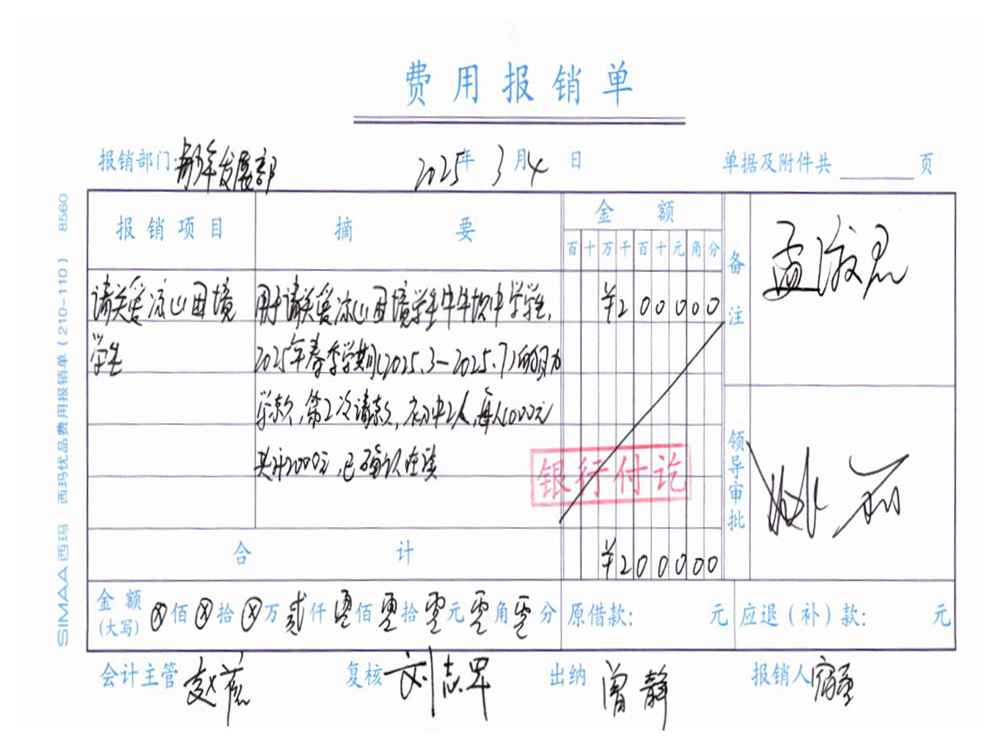 费用报销单
报销部门: 发展部 2025年3月4日 单据及附件共 页
报销项目 摘要 金额 备注
百十万千百十元角分
请关爱冰心困境
学生
用于请关爱冰心困境学生 中学学生,
2025年春季学期(2025.3-2025.7)的
学款, 第2次请款, 初中2人, 每人1000元
共计2000元, 已确认在读
¥200000
银行付讫
领导审批
合计 ¥200000
金额(大写) ⊗佰⊗拾⊗万贰仟零佰零拾零元零角零分 原借款: 元 应退(补)款: 元
会计主管 复核 刘志军 出纳 曾静 报销人
SIMAA 西玛 西玛优品费用报销单(210-110) 8560